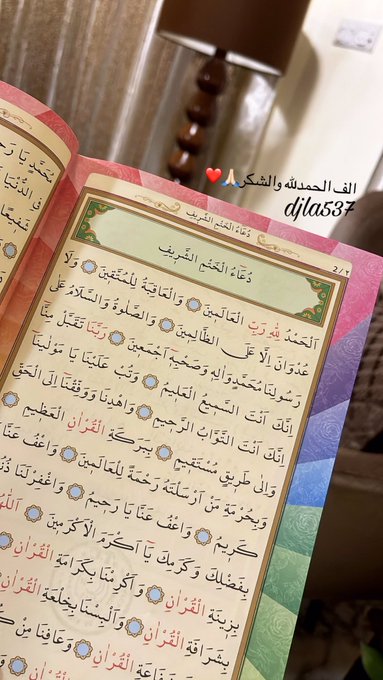 الف الحمدلله والشكر🙏🏻❤️
djla537
دُعَاءُ الْخَتْمِ الشَّرِيفِ
2/٢
دُعَاءُ الْخَتْمِ الشَّرِيفِ
اَلْحَمْدُ لِلّٰهِ رَبِّ الْعَالَمِينَ ۞ وَالْعَاقِبَةُ لِلْمُتَّقِينَ ۞ وَلَا
عُدْوَانَ اِلَّا عَلَى الظَّالِمِينَ ۞ وَالصَّلٰوةُ وَالسَّلَامُ عَلٰى
رَسُولِنَا مُحَمَّدٍ وَاٰلِهِ وَصَحْبِهِ اَجْمَعِينَ ۞ رَبَّنَا تَقَبَّلْ مِنَّا
اِنَّكَ اَنْتَ السَّمِيعُ الْعَلِيمُ ۞ وَتُبْ عَلَيْنَا يَا مَوْلٰينَا
اِنَّكَ اَنْتَ التَّوَّابُ الرَّحِيمُ ۞ وَاهْدِنَا وَوَفِّقْنَا اِلَى الْحَقِّ
وَاِلٰى طَرِيقٍ مُسْتَقِيمٍ ۞ بِبَرَكَةِ الْقُرْاٰنِ الْعَظِيمِ ۞
وَبِحُرْمَةِ مَنْ اَرْسَلْتَهُ رَحْمَةً لِلْعَالَمِينَ ۞ وَاعْفُ عَنَّا يَا
كَرِيمُ ۞ وَاعْفُ عَنَّا يَا رَحِيمُ ۞ وَاغْفِرْ لَنَا
بِفَضْلِكَ وَكَرَمِكَ يَا اَكْرَمَ الْاَكْرَمِينَ ۞ اَللّٰهُ
بِزِينَةِ الْقُرْاٰنِ ۞ وَاَكْرِمْنَا بِكَرَامَةِ الْقُرْاٰنِ ۞
بِشَرَافَةِ الْقُرْاٰنِ ۞ وَاَلْبِسْنَا بِخِلْعَةِ الْقُرْاٰنِ
الْقُرْاٰنِ ۞ وَعَافِنَا مِنْ